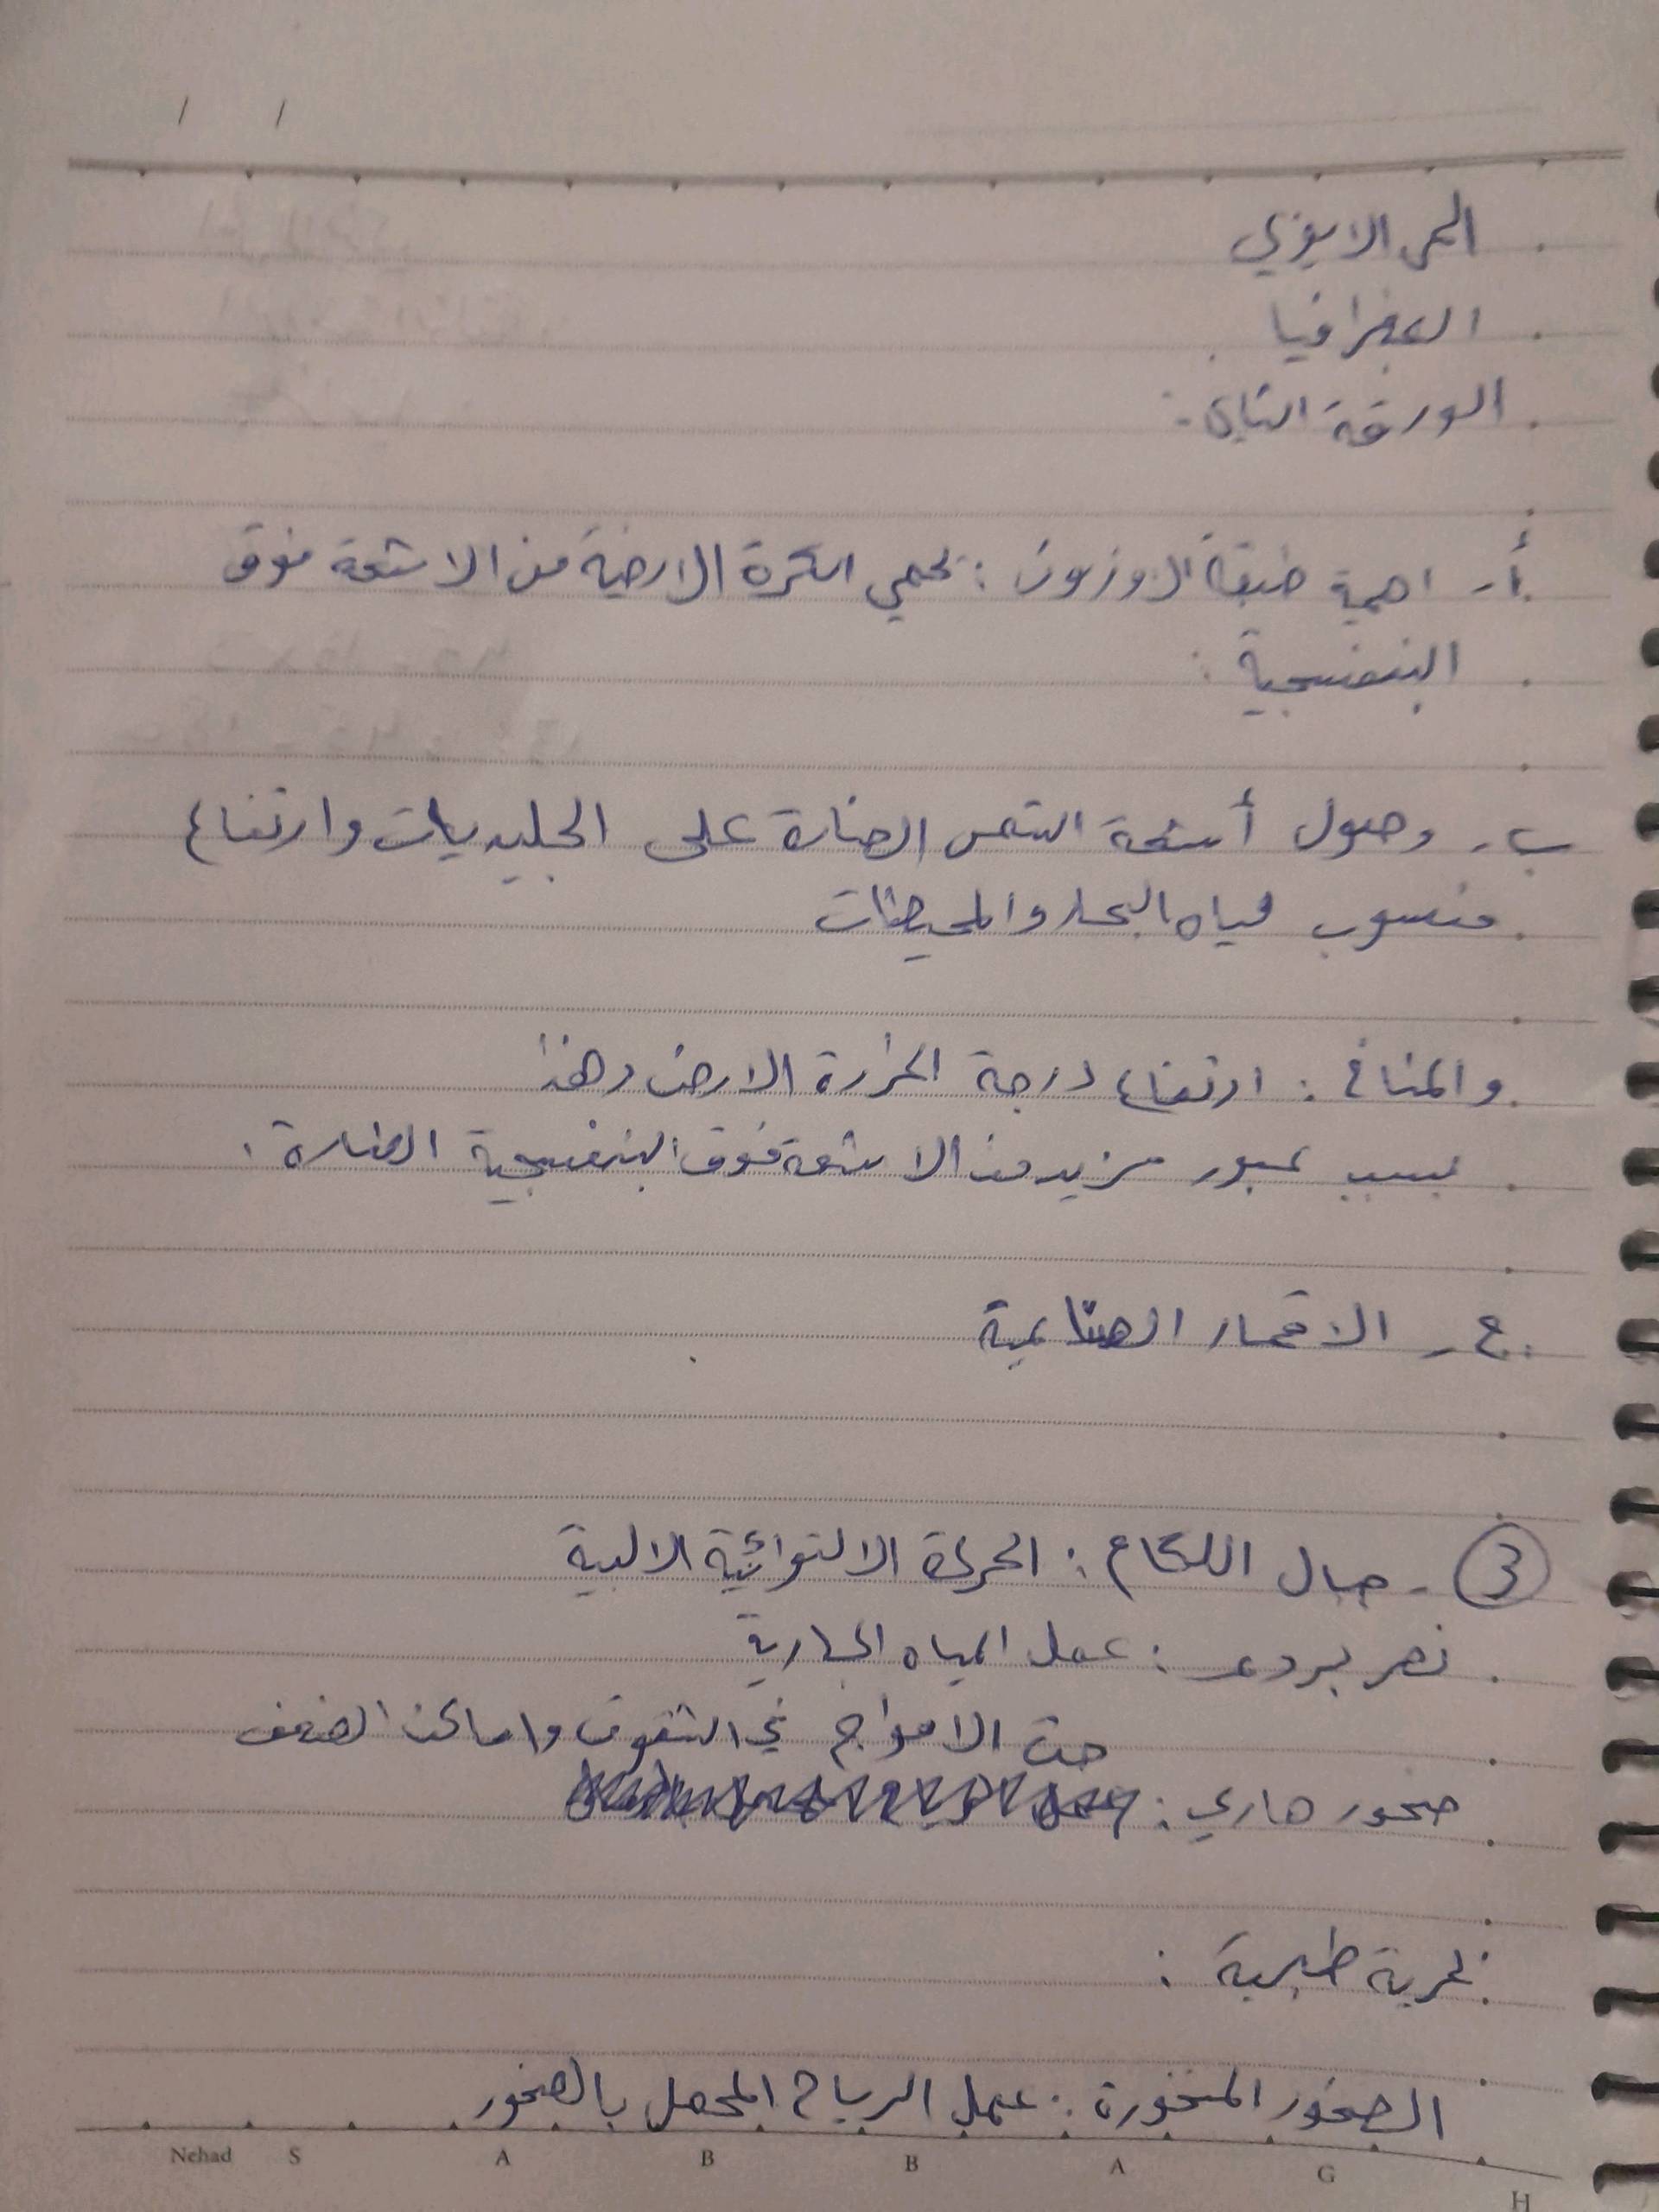 / /
الايوبي
الجغرافيا
الورقة الثاني :
أ- اهمية طبقة الاوزون : تحمي الكرة الارضية من الاشعة فوق
البنفسجية .
ب- وصول أشعة الشمس الضارة على الجليديات وارتفاع
منسوب مياه البحار والمحيطات
والمناخ : ارتفاع درجة الحرارة الارض وهذا
بسبب عبور مزيد من الاشعة فوق البنفسجية الضارة .
ج- الاقمار الصناعية
3 - جبال اللكام : الحركة الالتوائية الالبية
نهر بردى : عمل المياه الجارية
حت الامواج في الشقوق واماكن الضعف
صخور هاري :
بحرية طبرية :
الصخور المنخورة : عمل الرياح المحمل بالصخور
Nehad S A B B A G H